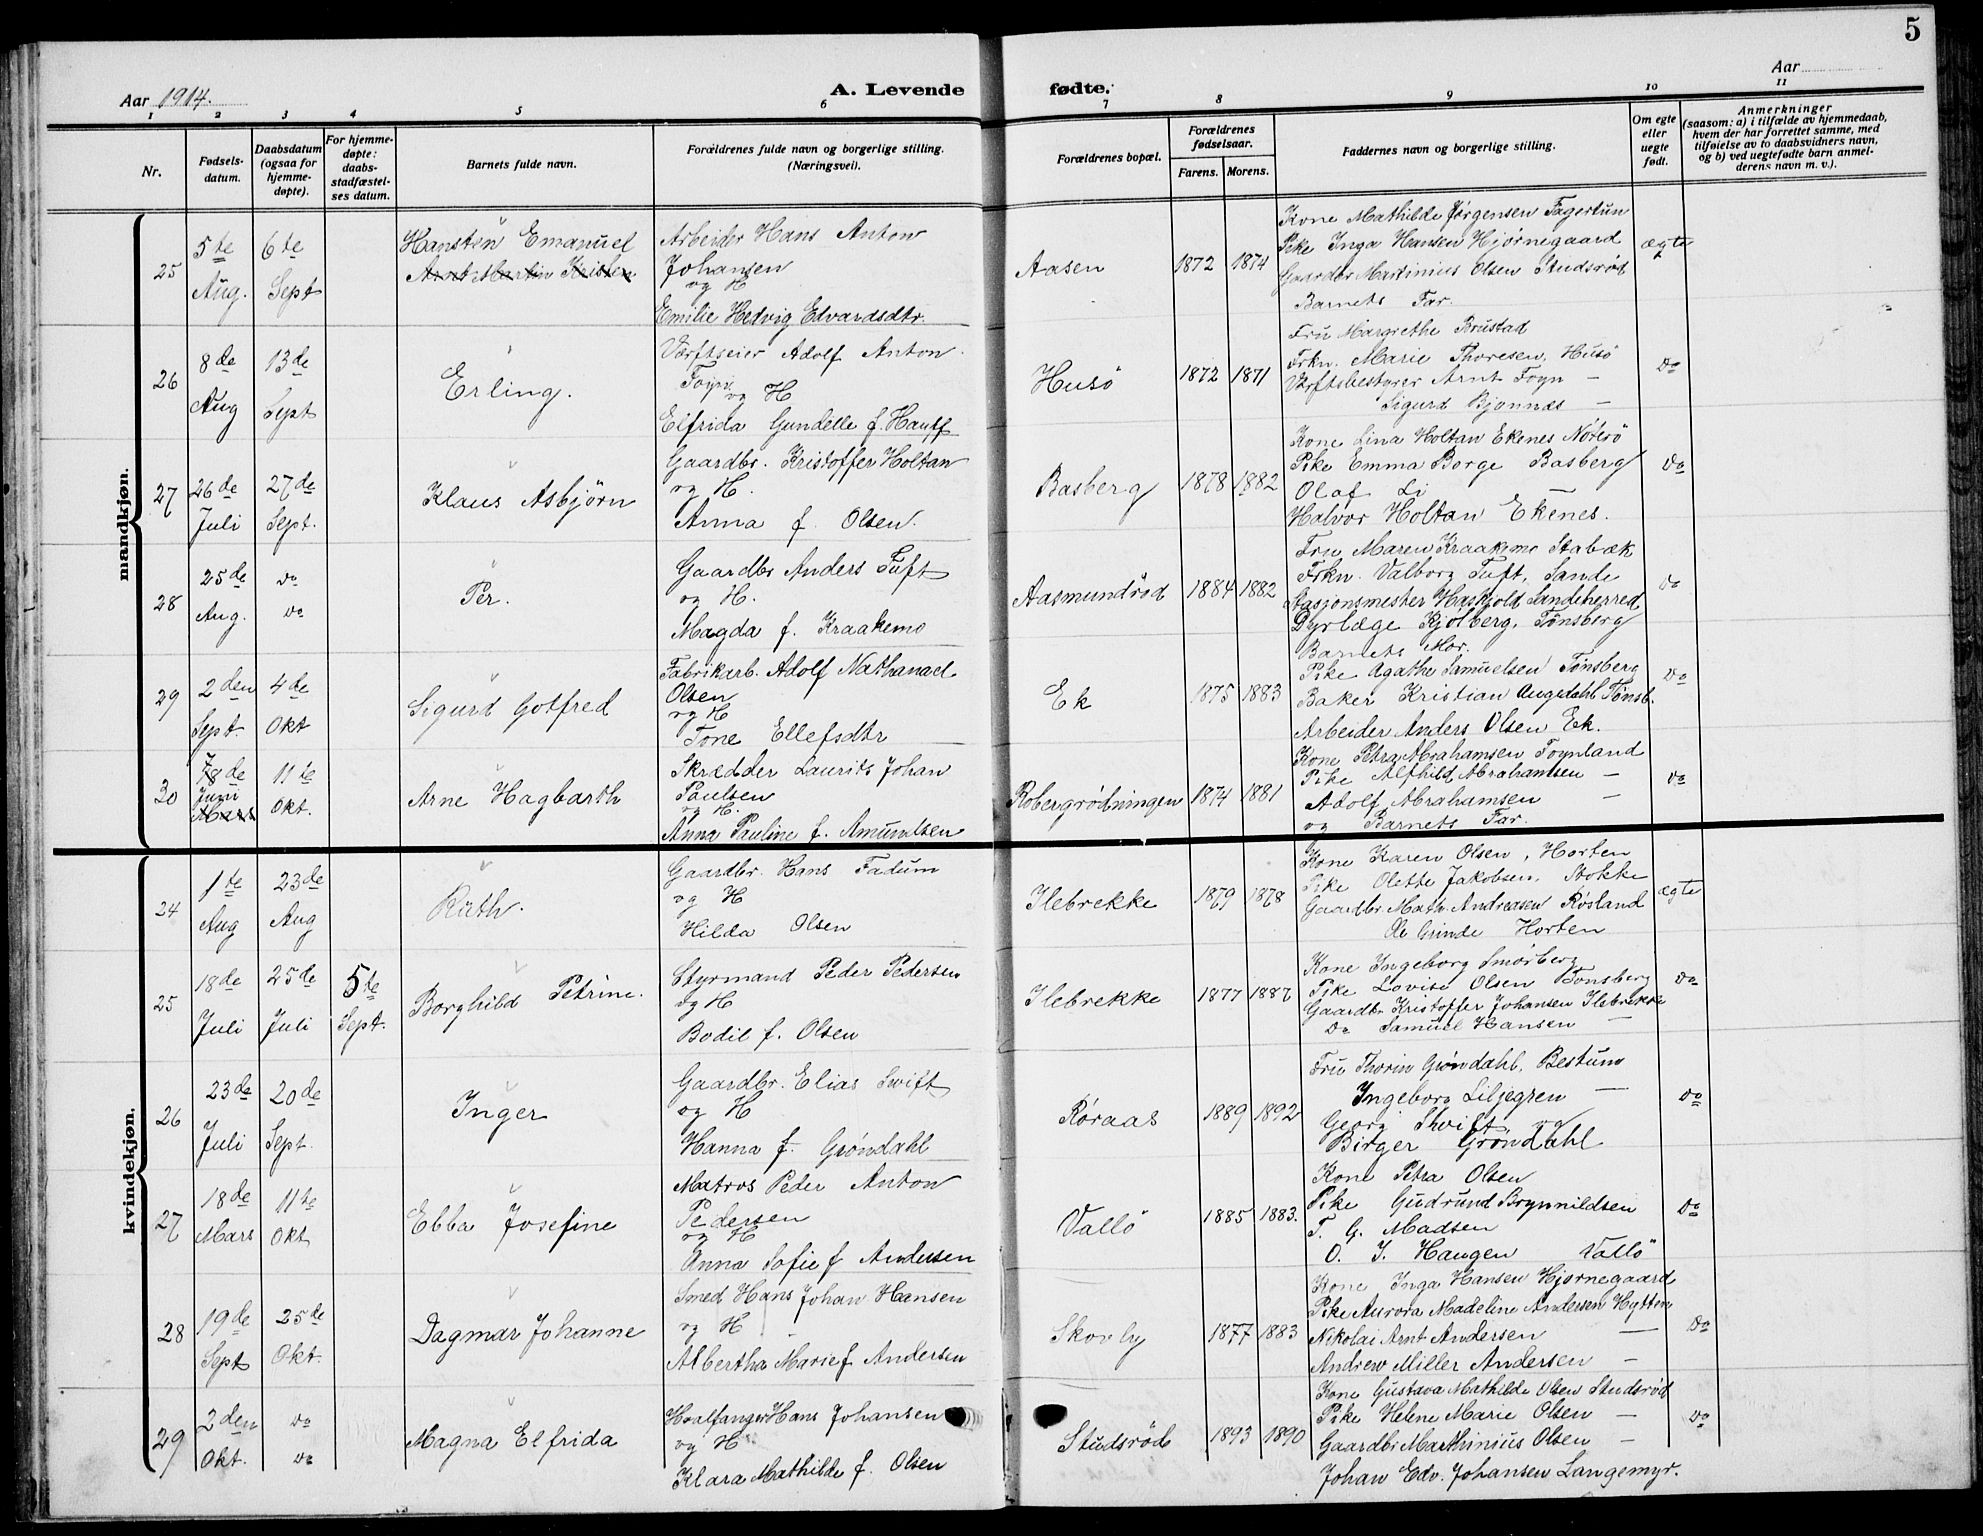 5
Aar 1914.
A. Levende fødte.
Aar
1 2 3 4 5 6 7 8 9 10 11
Nr.
Fødsels-
datum.
Daabsdatum
(ogsaa for
hjemme-
døpte).
For hjemme-
døpte:
daabs-
stadfæstel-
ses datum.
Barnets fulde navn.
Forældrenes fulde navn og borgerlige stilling.
(Næringsvei).
Forældrenes bopæl.
Forældrenes
fødselsaar.
Farens. Morens.
Faddernes navn og borgerlige stilling.
Om egte
eller
uegte
født.
Anmerkninger
(saasom: a) i tilfælde av hjemmedaab,
hvem der har forrettet samme, med
tilføielse av to daabsvidners navn,
og b) ved uegtefødte barn anmel-
derens navn m. v.).
mandkjøn.
25
5te
Aug.
6te
Sept
Hansten Emanuel
Arnt Martin Kristen
Arbeider Hans Anton
Johansen
og H
Emilie Hedvig Edvardsdtr.
Aasen
1872 1874
Kone Mathilde Jørgensen Fagertun
Pike Inga Hansen Hjørnegaard
Gaardbr Martinius Olsen Studsrød
Barnets Far.
ægte
26
8de
Aug
13de
Sept
Erling.
Værftseier Adolf Anton
Foyn
og H
Elfrida Gundelle f. Hauff
Husö
1872 1871
Fru Margrethe Brustad
Frkn. Marie Thoresen, Husö
Værftsbestyrer Arnt Foyn —
Sigurd Bjønnes —
do
27
26de
Juli
27de
Sept.
Klaus Asbjörn
Gaardbr. Kristoffer Holtan
og H.
Anna f. Olsen.
Basberg
1878 1882
Kone Lina Holtan Ekenes Nöterö
Pike Emma Borge Basberg
Olaf Li
Halvor Holtan Ekenes.
do
28
25de
Aug.
do
do
Per.
Gaardbr Anders Tuft
og H.
Magda f. Kraakemo
Aasmundrød
1884 1882
Fru Maren Kraakemo Stabæk
Frkn. Valborg Tuft, Sande
Stasjonsmester Haskjold Sandeherred
Dyrlæge Kjølberg, Tønsberg
Barnets Mor.
do
29
2den
Sept.
4de
Okt
Sigurd Gotfred
Fabrikarb. Adolf Nathanael
Olsen
og H
Tone Ellefsdtr
Ek
1875 1883
Pike Agathe Samuelsen Tønsberg
Baker Kristian Augedahl Tønsb.
Arbeider Anders Olsen Ek.
do
30
78de
Juni
Mars
11te
Okt.
Arne Hagbarth
Skrædder Laurits Johan
Paulsen
og H.
Anna Pauline f. Amundsen
Robergrødningen
1874 1881
Kone Petra Abrahamsen Foynland
Pike Alfhild Abrahamsen —
Adolf Abrahamsen —
og Barnets Far.
do
kvindekjøn.
24
1te
Aug
23de
Aug
Ruth.
Gaardbr. Hans Fadum
og H
Hilda Olsen
Ilebrekke
1879 1878
Kone Karen Olsen, Horten
Pike Olette Jakobsen, Stokke
Gaardbr. Math. Andreasen Røsland
Ole Grinde Horten
ægte
25
18de
Juli
25de
Juli
5te
Sept.
Borghild Petrine.
Styrmand Peder Pedersen
og H
Bodil f. Olsen
Ilebrekke
1877 1887
Kone Ingeborg Smørberg
Pike Lovise Olsen Tønsberg
Gaardbr Kristoffer Johansen Ilebrekke
do Samuel Hansen —
do
26
23de
Juli
20de
Sept.
Inger
Gaardbr. Elias Swift
og H
Hanna f. Grøndahl
Røraas
1889 1892
Fru Thorin Grøndahl, Bestum
Ingeborg Liljegren —
Georg Swift
Birger Grøndahl
do
27
18de
Mars
11te
Okt
Ebba Josefine
Matros Peder Anton
Pedersen
og H
Anna Sofie f Andersen
Vallö
1885 1883.
Kone Petra Olsen
Pike Gudrund Brynnildsen
T. G. Madsen
O. J. Haugen Vallö
do
28
19de
Sept
25de
Okt.
Dagmar Johanne
Smed Hans Johan Hansen
og H
Albertha Marie f Andersen
Skovby
1877 1883
Kone Inga Hansen Hjørnegaard
Pike Aurora Madeline Andersen Hytten
Nikolai Arnt Andersen —
Andrew Miller Andersen —
do
29
2den
Okt.
do
do
Magna Elfrida
Hvalfanger Hans Johansen
og H
Klara Mathilde f. Olsen
Studsrød
1893 1890
Kone Gustava Mathilde Olsen Studsrød
Pike Helene Marie Olsen —
Gaardbr Marthinius Olsen —
Johan Edv. Johansen Langemyr.
do